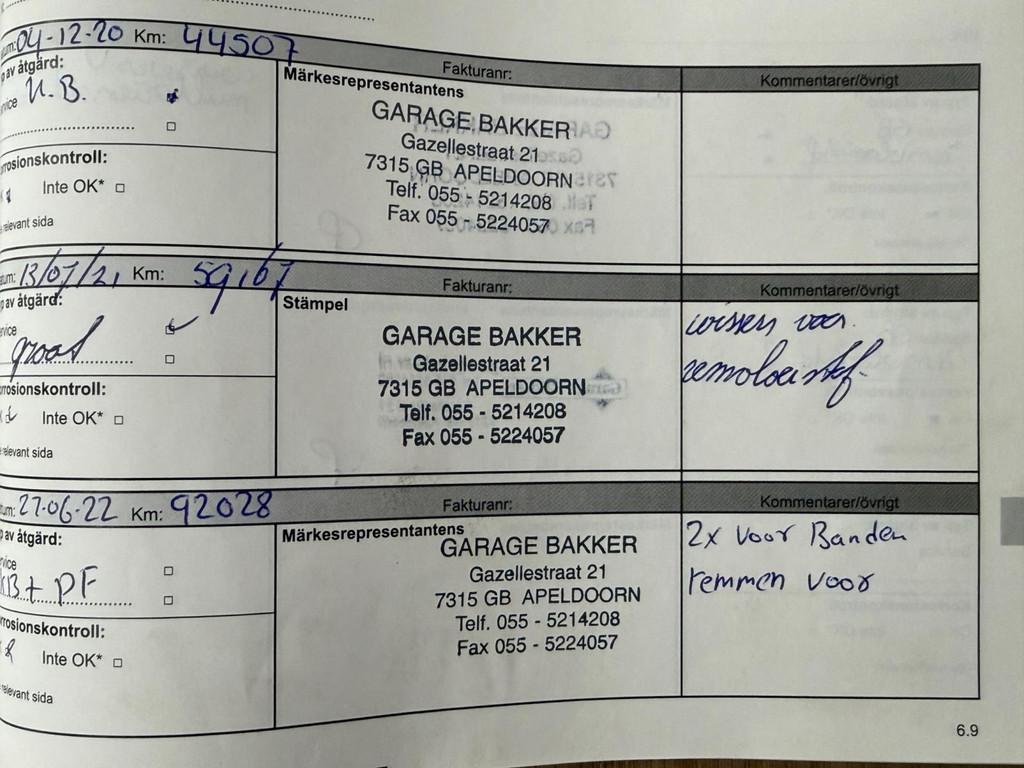 04-12-20 Km: 44507
Fakturanr:
Kommentarer/övrigt
av åtgärd:
K.B.
Märkesrepresentantens
GARAGE BAKKER
Gazellestraat 21
7315 GB APELDOORN
Telf. 055 - 5214208
Fax 055 - 5224057
rrosionskontroll:
Inte OK*
relevant sida
13/07/21 Km: 59167
Fakturanr:
Kommentarer/övrigt
av åtgärd:
groot
Stämpel
GARAGE BAKKER
Gazellestraat 21
7315 GB APELDOORN
Telf. 055 - 5214208
Fax 055 - 5224057
wissers voor
remvloeistof
rrosionskontroll:
Inte OK*
relevant sida
27-06-22 Km: 92028
Fakturanr:
Kommentarer/övrigt
av åtgärd:
KB + PF
Märkesrepresentantens
GARAGE BAKKER
Gazellestraat 21
7315 GB APELDOORN
Telf. 055 - 5214208
Fax 055 - 5224057
2x voor Banden
remmen voor
rrosionskontroll:
Inte OK*
relevant sida
6.9